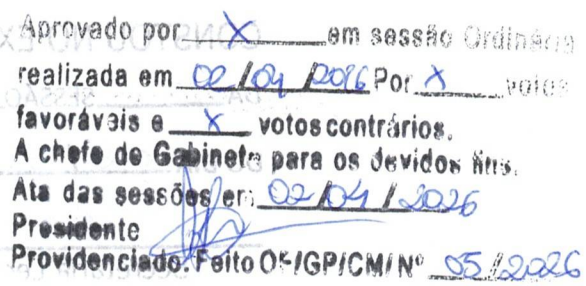 Aprovado por X em sessão Ordinária
realizada em 02/04/2026 Por X votos
favoráveis e X votos contrários.
A chefe de Gabinete para os devidos fins.
Ata das sessões em 02/04/2026
Presidente
Providenciado. Feito OF/GP/CM/Nº 05/2026